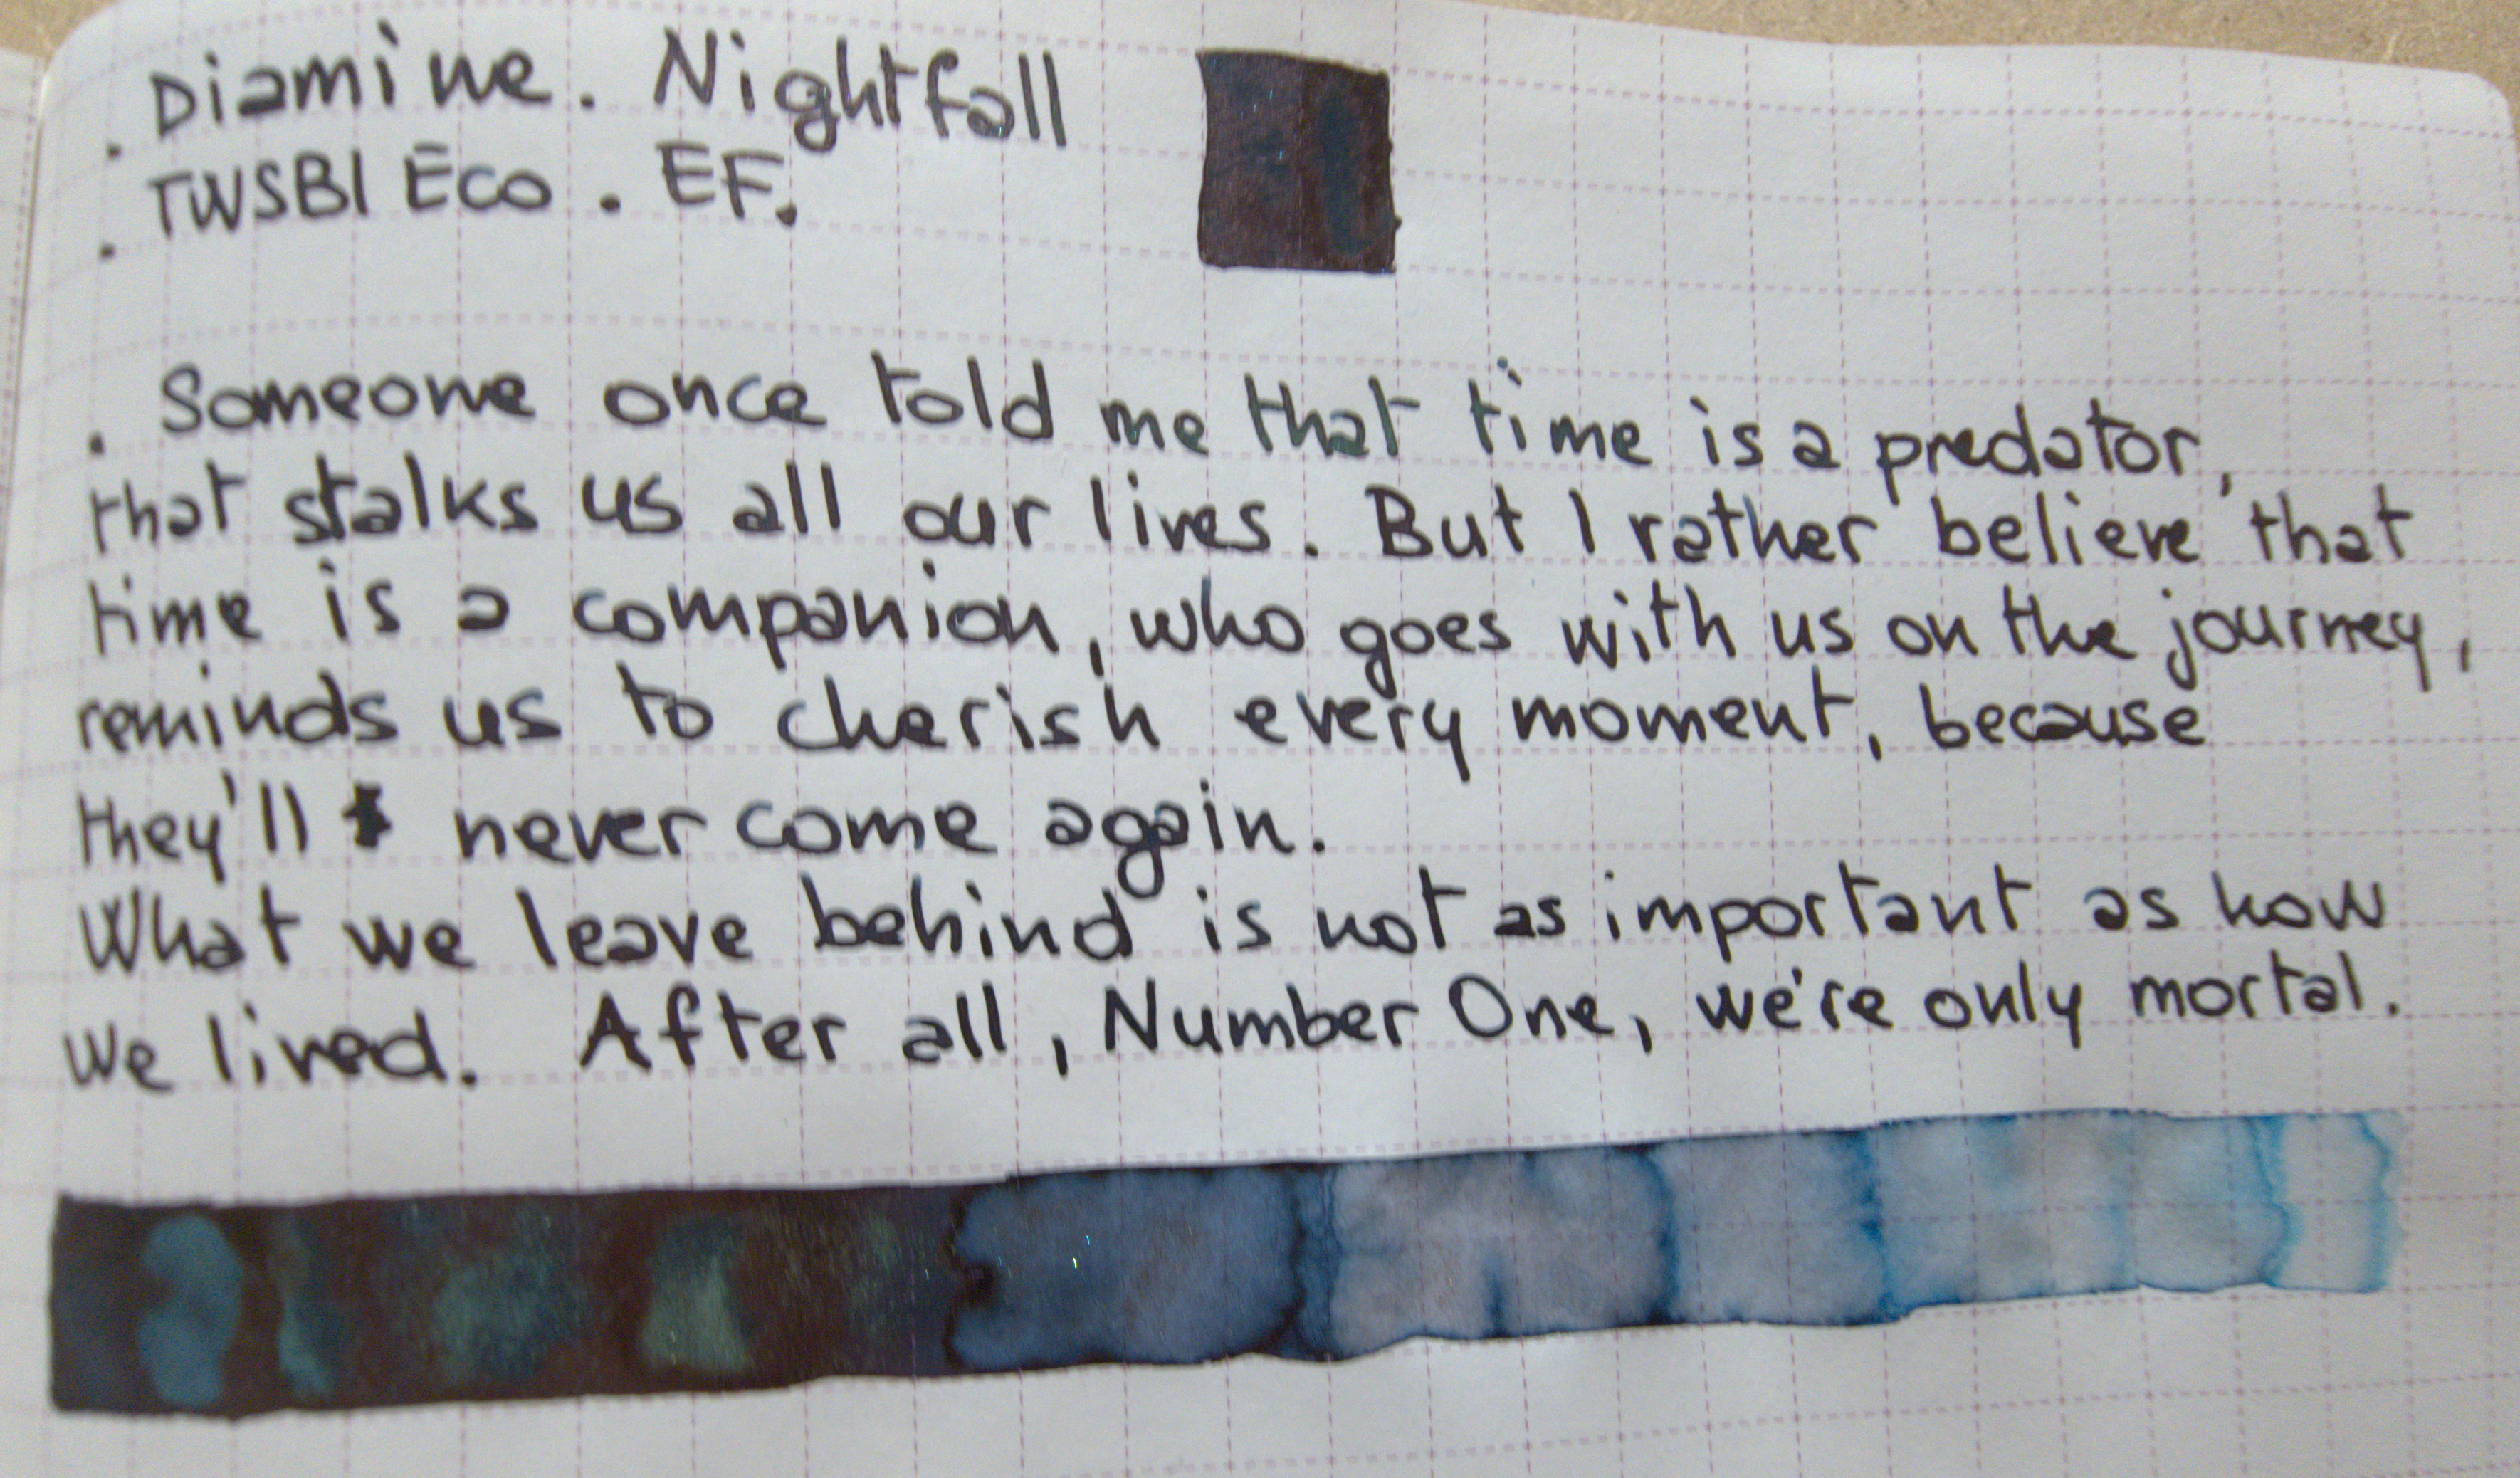 . Diamine. Nightfall
. TWSBI Eco. EF.
. Someone once told me that time is a predator,
that stalks us all our lives. But I rather believe that
time is a companion, who goes with us on the journey,
reminds us to cherish every moment, because
they'll never come again.
What we leave behind is not as important as how
we lived. After all, Number One, we're only mortal.